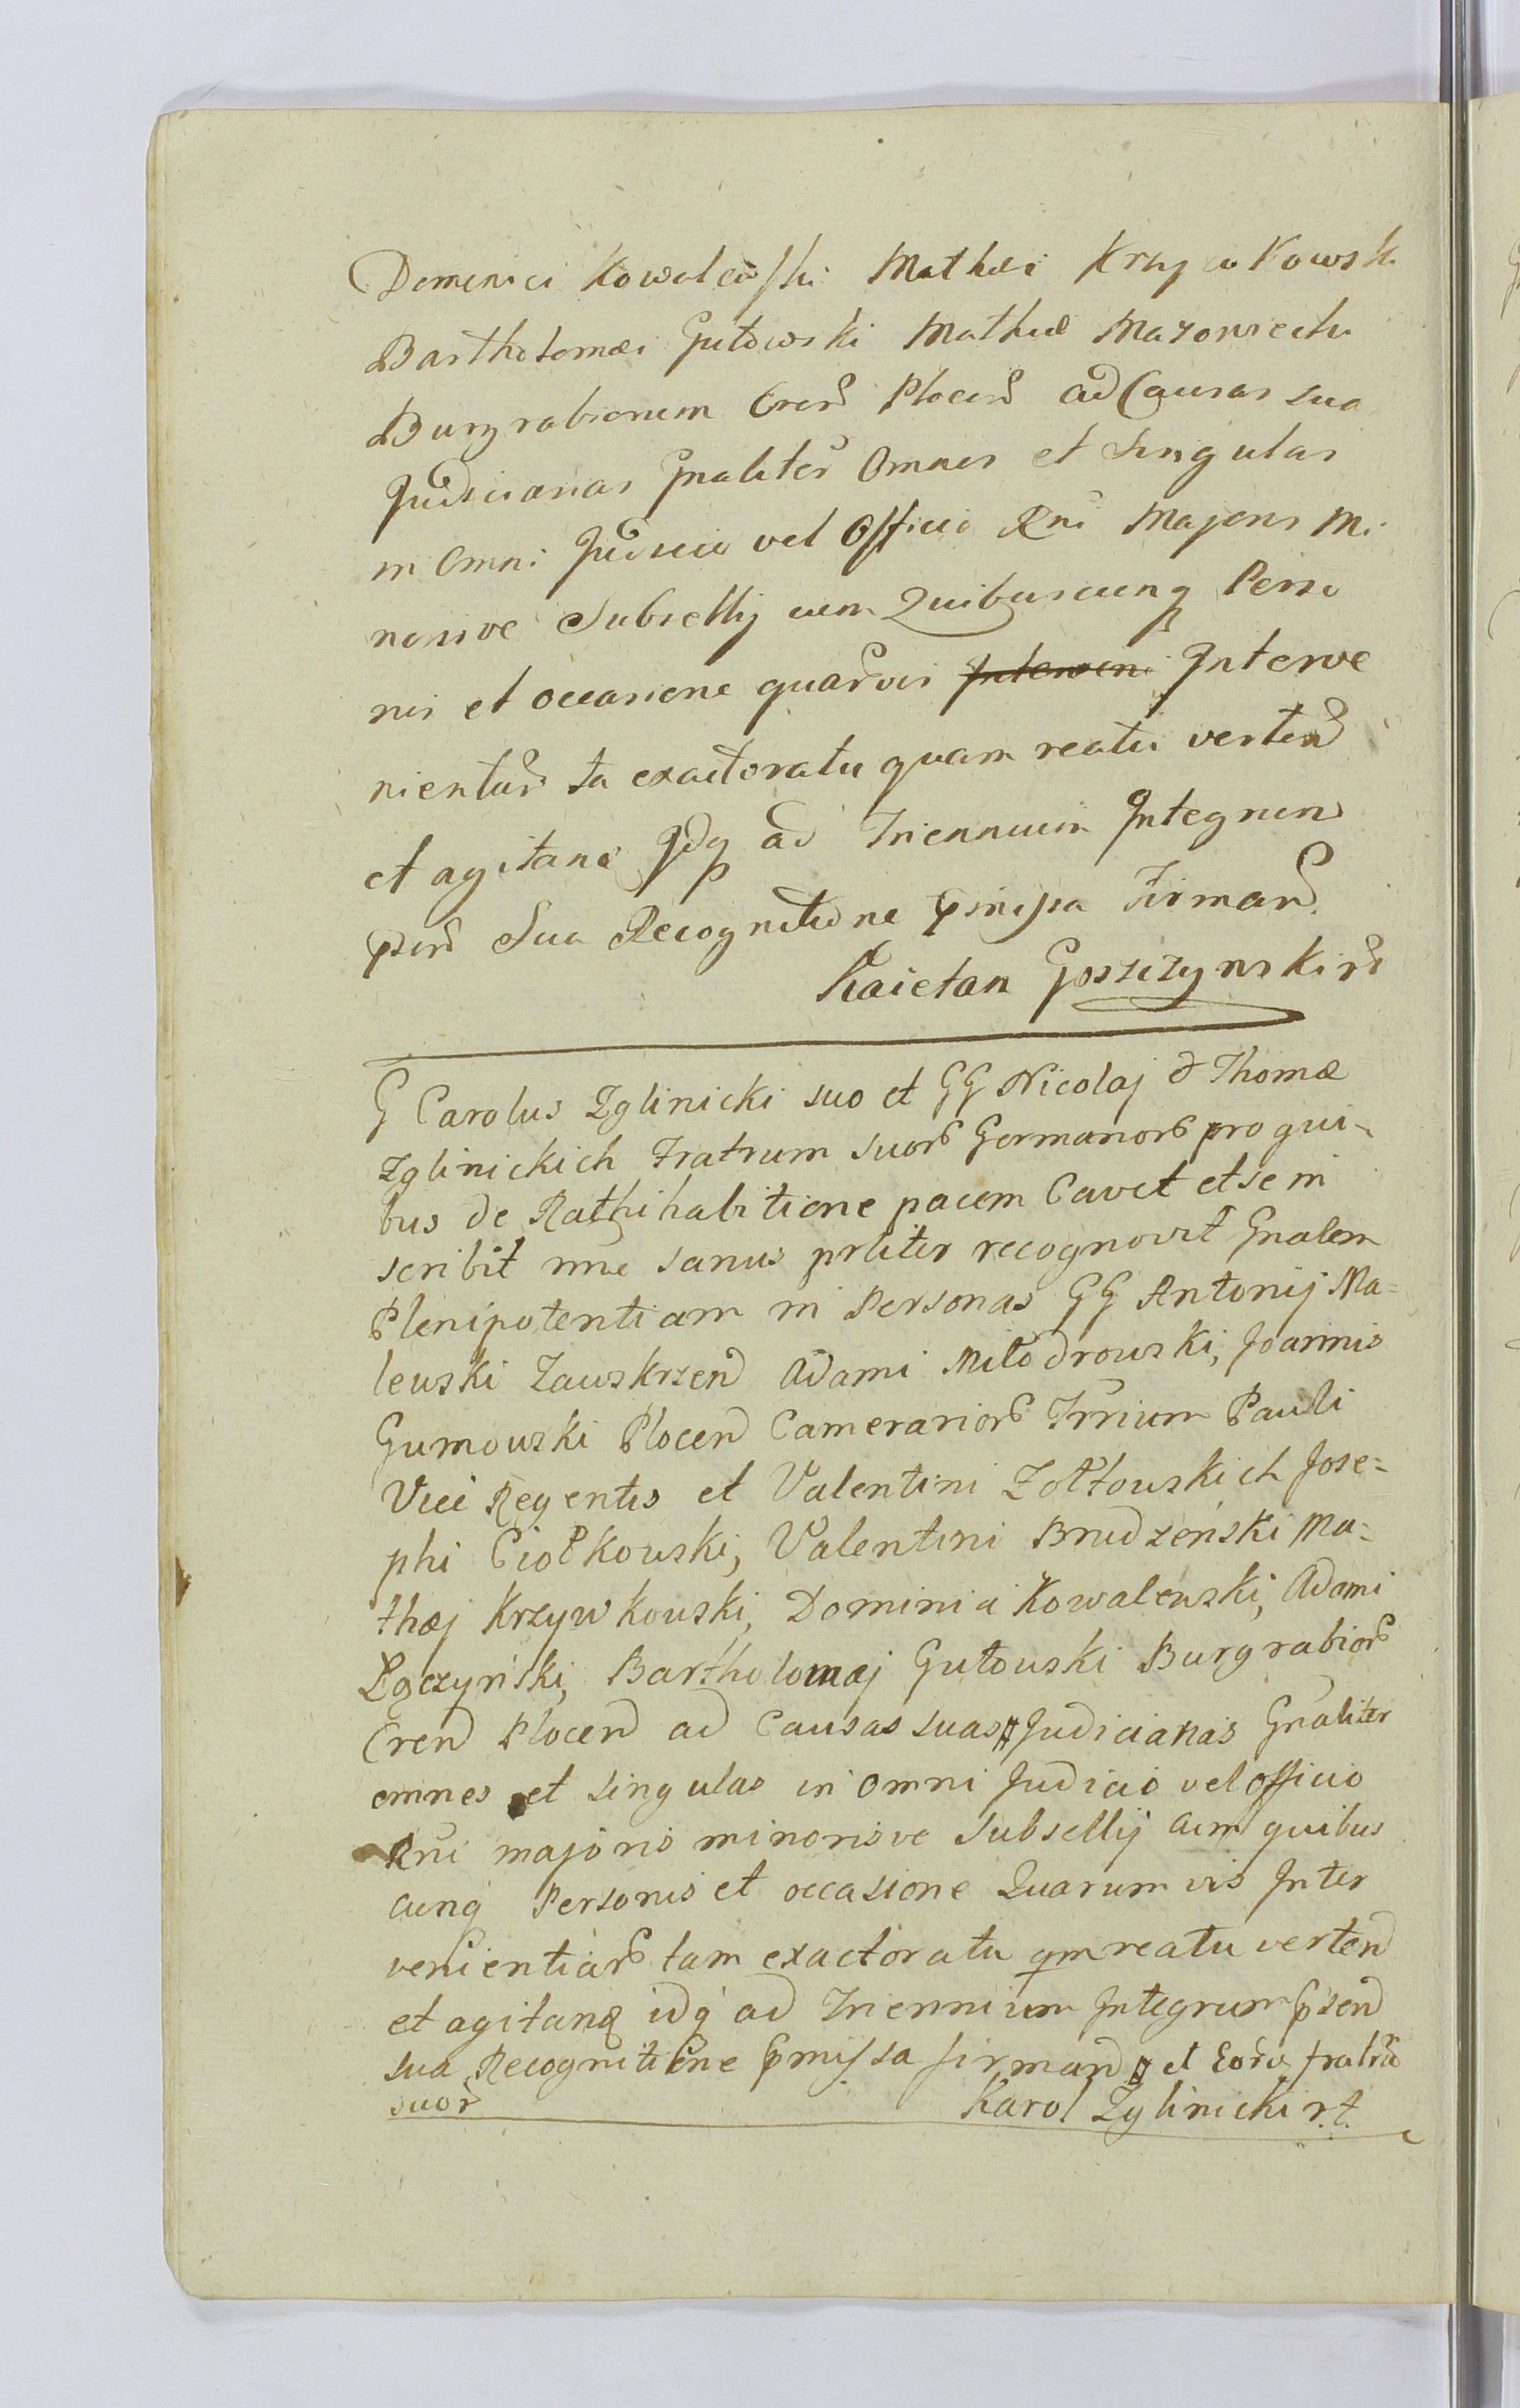 Dominici Kowalewski Mathei Krzywkowski
Bartholomæi Gutowski Mathæi Mazowiecki
Burgrabiorum Cren Plocen ad Causas sua
Judiciarias Gnaliter Omnes et Singulas
in Omni Judicio vel Officio Rni Majoris Mi
norisve Subsellij cum Quibuscunq Perso
nis et occasione quarvis Interveni Interve
nientiar ta exactoratu quam reatu verten
et agitan Idq ad Triennium Integrum
psen Sua Recognitione pmissa Firman
Kaietan Goszczynski
G Carolus Zglinicki suo et GG Nicolaj & Thomæ
Zglinickich Fratrum suor Germanor pro qui-
bus de Rathihabitione pacem Cavet et se in
scribit mne sanus prliter recognovit Gnalem
Plenipotentiam in Personas GG Antonij Ma=
lewski Zawskrzen Adami Miłodrowski, Joannis
Gumowski Plocen Camerarior Trrium Pauli
Vice Regentis et Valentini Zołtowskich Jose=
phi Ciołkowski, Valentini Brudzeński Ma=
thæj Krzywkowski, Dominici Kowalewski, Adami
Łączyński, Bartholomæj Gutowski Burgrabior
Cren Plocen ad Causas suas Judiciarias Gnaliter
omnes et singulas in omni Judicio vel officio
Rni majoris minorisve Subsellij cum quibus
cunq Personis et occasione Quarumvis Inter
venientiar tam exactoratu qm reatu verten
et agitan idq ad Triennium Integrum psen
sua Recognitione pmissa firman et Eor fratru
suor
Karol Zglinicki